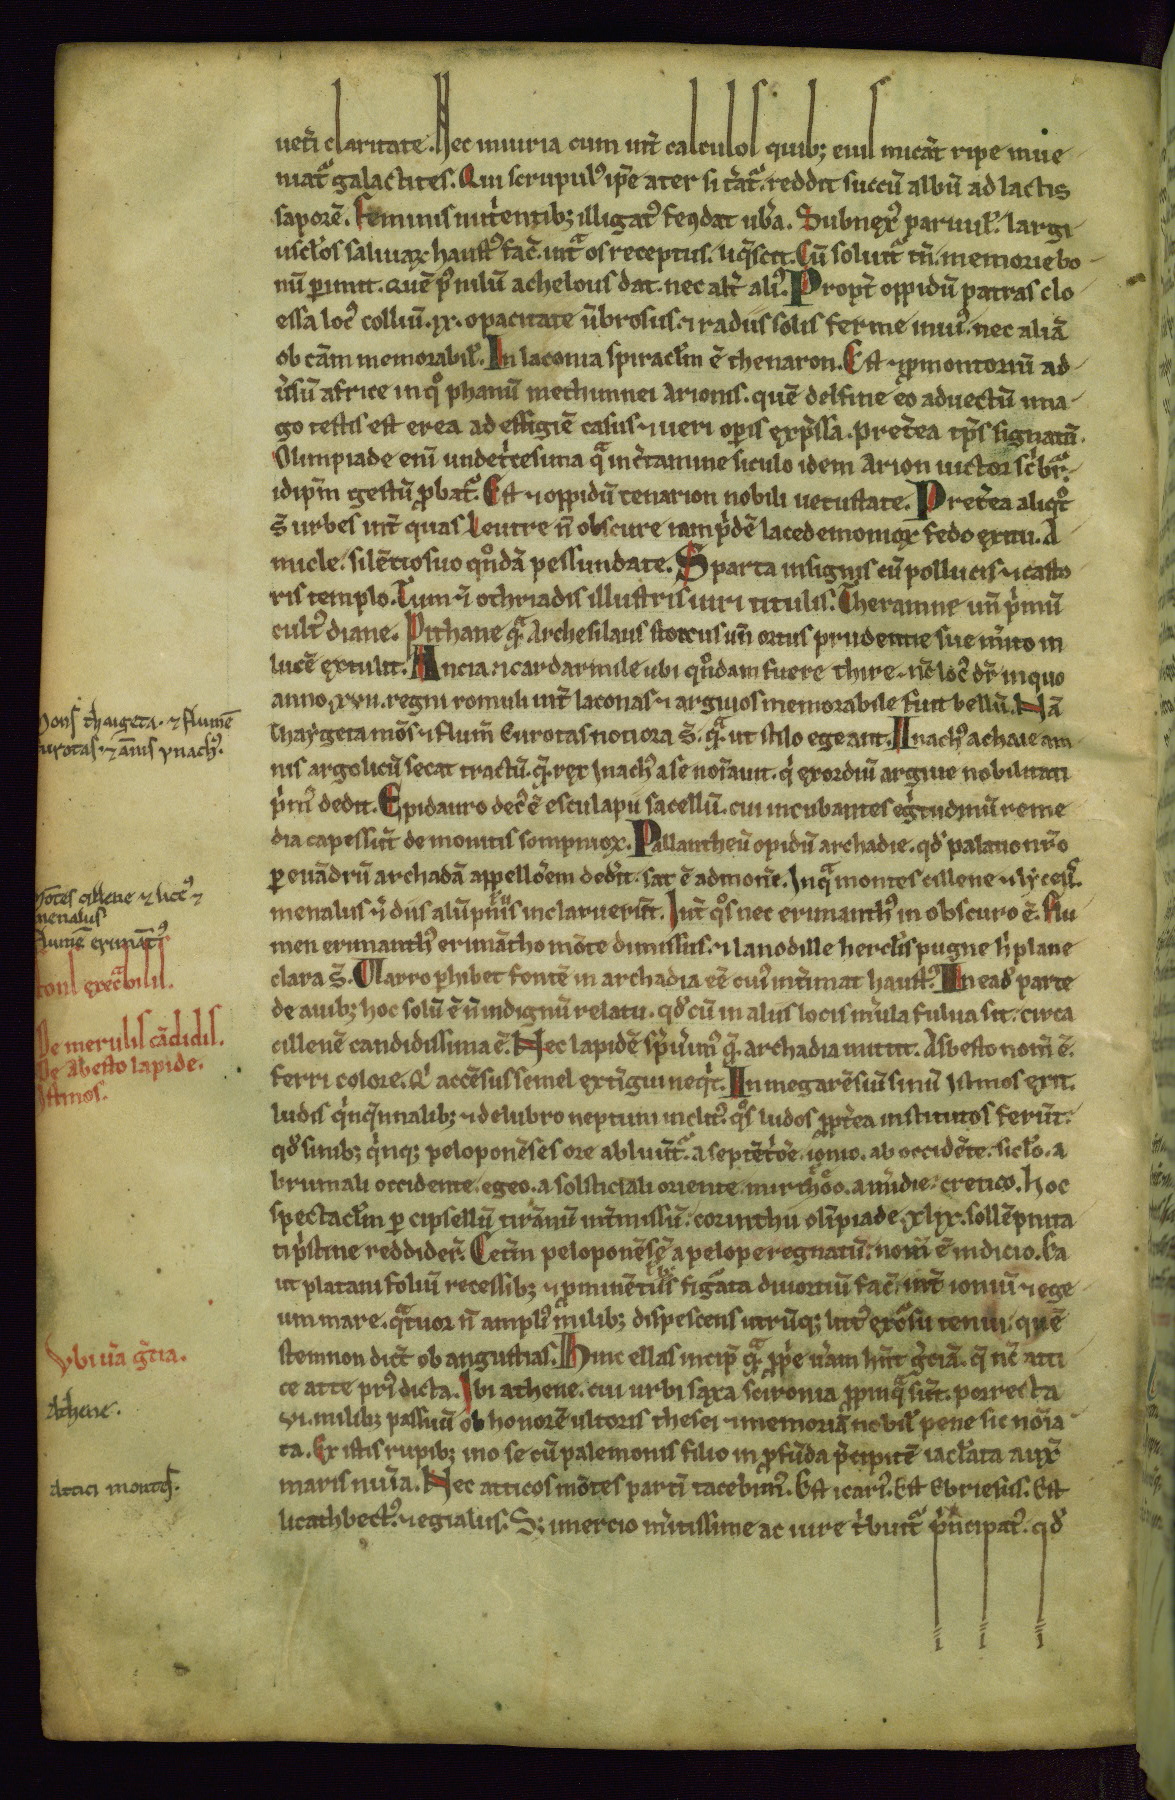 uet̄i claritate. Nec iniuria cum int̄ calculos quib; euil micāt ripe inue
niat᷑ galactites. Qui scrupul᷒ ip̄e ater si t̄at᷑. reddit succū albū ad lactis
saporē. Feminis nut̄entib; illigat᷒ fecūdat ub̄a. Subnex᷒ paruul̄. largi
uscl̄os saliuaꝝ haust᷒ fac̄. int̄ os receptus. liq̄scit. Cū soluit᷑ tn̄. memorie bo
nū ꝑimit. Quē p᷒ nilū achelous dat. nec alt̄ ali᷒. Propt̄ oppidū patras clo
essa loc᷒ colliū. ix. opacitate ūbrosus. ⁊ radiis solis ferme inui᷒. nec aliā
ob cām memorabil̄. In laconia spiracl̄m ē thenaron. Est ⁊ ꝓmontoriū ad
u̓sū africe in qͦ phanū methimnei Arionis. quē delfine eo aduectū ima
go testis est erea ad effigiē casus ⁊ ueri oꝑis exp̄ssa. Pret̄ea tp̄s signatū.
Olimpiade eni undet̄cesima qᷓ inc̄tamine siculo idem Arion uictor sc̄br᷑.
idip̄m gestū ꝓbat᷑. Est ⁊ oppidū tenarion nobili uetustate. Pret̄ea aliqͦt
s̄ urbes int̄ quas leutre n̄ obscure iam p̄dē lacedemonioꝝ fedo exitu. A
micle. silētio suo qͦndā pessundate. Sparta insignis cū pollucis ⁊ casto
ris templo. Tum ⁊ othriadis illustris uiri titulis. Theramne un̄ p̓mū
cult᷒ diane. Pithane qᷓ Archesilaus stoicus un̄ ortus prudentie sue m̓ito in
lucē extulit. Ancia ⁊ cardarmile ubi qͦndam fuere thire. nc̄ loc᷒ dr̄ in quo
anno. xvii. regni romuli int̄ laconas ⁊ arguios memorabile fuit bellū. Nā
thaẏgeta mōs ⁊ flum̄ Eurotas notiora s̄. qᷓ ut stilo egeant. Inach᷒ achaie am
nis argolicū secat tractū. q̄ rex Inach᷒ a se noīauit. q̓ exordiū argiue nobilitati
p̓m᷒ dedit. Epidauro dec᷒ ē esculapii sacellū. cui incubantes eg̓tudinū reme
dia capessūt de monitis sompnioꝝ. Pallantheū opidū archadie. qđ palatio nr̄o
ꝑ euādrū archadā appellōem dedit. sat ē admonē. Inqᷓ montes cillene ⁊ lẏceu᷒.
menalus ⁊ diis alūpnis inclaruerūt. Int̄ qͦs nec erimanth᷒ in obscuro ē. Flu
men erimanth᷒ erimātho mōte dimissus. ⁊ lanodille hercl̄is pugne h̓ plane
clara s̄. Varro ꝑhibet fontē in archadia eē cui᷒ int̄imat haust᷒. In eađ parte
de auib; hoc solū ē n̄ indignū relatu. qđ cū in aliis locis m̓ula fulua sit. circa
cillenē candidissima ē. Nec lapidē sp̓uim᷒ q̄ archadia mittit. Asbesto nom̄ ē.
ferri colore. Q̓ accēsus semel exti̓gui neq̓t. In megarēsiū sinū ystmos exit.
ludis q̓nq̄nnalib; ⁊ delubro neptuni inclit᷒. qͦs ludos ꝓpt̄ea institutos ferūt.
qđ sinib; q̓nq; peloponēses ore abluūt᷑. a septēt̓oē. ionio. ab occidēte. sicl̄o. a
brumali occidente. egeo. a solsticiali oriente. mirthoo. a m̓idie. cretico. Hoc
spectacl̄m ꝑ cipsellū tirānū int̄missū. corinthii oli̓piade. xlix. sollēpnita
ti p̓stine reddider̄. Cet̄m peloponēsē a pelope regnatū. nom̄ ē indicio. Ea
ut platani foliū recessib; ⁊ ꝓminētiis figᷓata diuortiū fac̄ int̄ ioniū ⁊ ege
um mare. qᷓtuor n̄ ampli᷒ milib; dispescens utrūq; litt᷒ excͦsu tenui. quē
stemnon dict̄ ob angustias. Hinc ellas incip̄ qᷓ ꝓp̓e u̓am hn̄t g̓ciā. q̄ nc̄ atti
ce atte pri᷒ dicta. Ibi athene. cui urbi saxa scironia ꝓpinqᷓ sūt. porrecta
vi. milib; passuū ob honorē ultoris thesei ⁊ memoriā nobil̄ pene sic noīa
ta. Ex istis rupib; ino se cū palemonis filio in ꝓfūda p̄cipitē iacl̄ata auxͬ
maris nuīa. Nec atticos mōtes parti̓ tacebim᷒. Est icari᷒. Est Ebriesus. Est
licathbect᷒. ⁊ egialus. S; imercio m̓itissime ac iure t̓buit᷑ p̓ncipat᷒. qđ
Mons thaigeta. ⁊ flumē
Eurotas ⁊ āms ynach᷒.
Mōtes cillene ⁊ lice᷒ ⁊
menalus
Flumē erimāt᷒
fons execᷓbilis.
De merulis cādidis.
De Abesto lapide.
Istmos.
Vbi u̓a g̓tia.
Athene.
Attici montes.